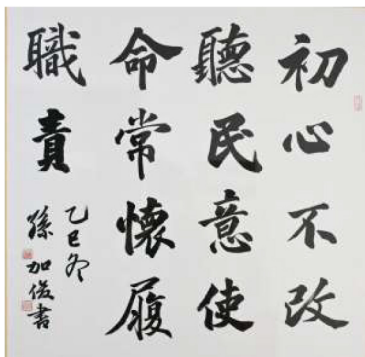 初心不改
聽民意使
命常懷履
職責
乙巳冬
孫加俊書